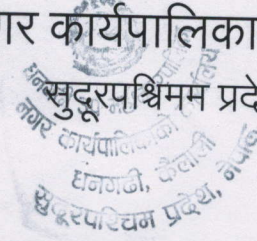 गर कार्यपालिका
सुदूरपश्चिमम प्रदे
नगर कार्यपालिकाको कार्यालय
धनगढी, कैलाली
सुदूरपश्चिम प्रदेश, नेपाल